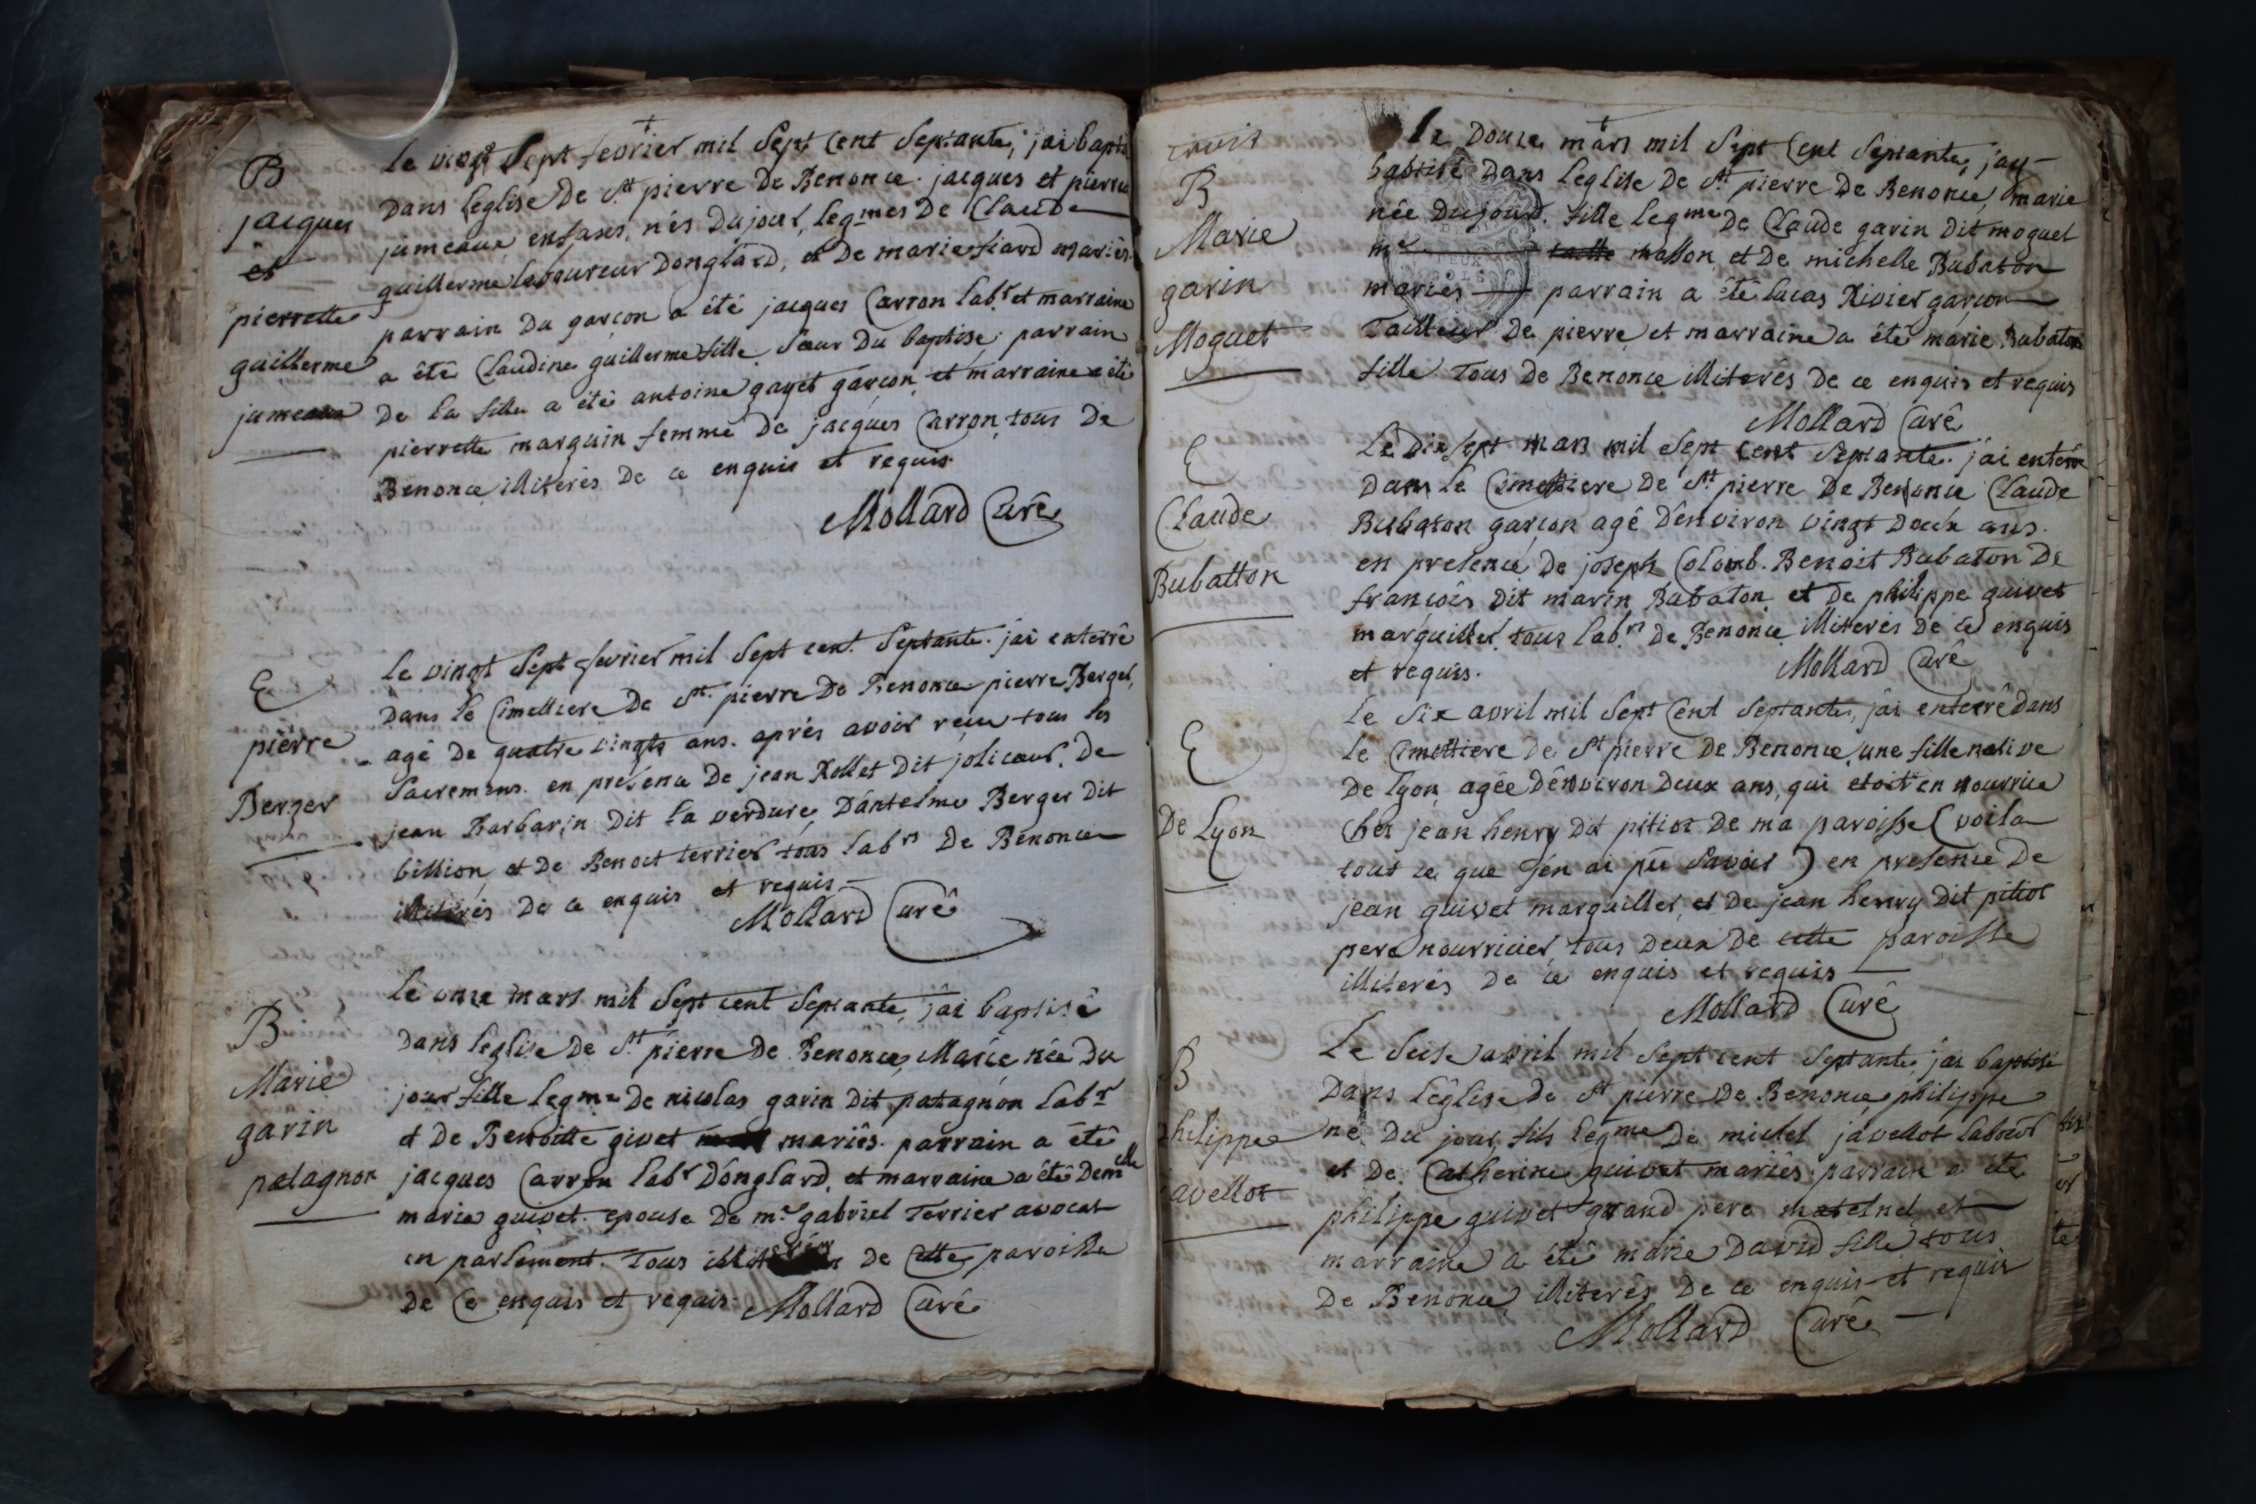 B
jacques
et
pierrette
guillerme
jumeaux
le vingt sept fevrier mil sept cent septante, jai bapti
dans leglise de St pierre de Benonce. jacques et pierre
jumeaux enfans, nés dujour, legmes de Claude
guillerme laboureur Donglard, et de marie fiard mariés.
parrain du garçon a été jacques Carron labr et marraine
a été Claudine guillerme fille Sœur du baptisé; parrain
de la fille a été antoine gayet garçon et marraine a été
pierrette marguin femme de jacques Carron, tous de
Benonce illiterés de ce enquis et requis
Mollard Curé
E
pierre
Berger
le vingt sept fevrier mil sept cent septante. jai enterré
dans le Cimettiere de St pierre de Benonce pierre Berger,
agé de quatre vingts ans. aprés avoir reçu tous les
Sacremens. en presence de jean Rollet dit jolicœur, de
jean Barbarin dit la verdure, Dantelme Berger dit
billion, et de Benoit terrier tous labrs de Benonce
illiterés de ce enquis et requis
Mollard Curé
B
Marie
garin
patagnon
le onze mars mil sept cent septante, jai baptisé
dans leglise de St pierre de Benonce, Marie née du
jour fille legme de nicolas garin dit patagnon labr
et de Benoitte givet mariés. parrain a été
jacques Carron labr Donglard, et marraine a été demelle
marie guivet epouse de mr gabriel Terrier avocat
en parlement. Tous de cette paroisse
de ce enquis et requis. Mollard Curé
B
Marie
garin
Moguet
le douze mars mil sept cent septante, jay
baptisé dans leglise de St pierre de Benonce, marie
née dujour. fille legme de Claude garin dit moguet
me masson et de michelle Bubaton
mariés parrain a été lucas Rivier garçon
Tailleur de pierre et marraine a été marie Bubaton
fille Tous de Benonce illiterés de ce enquis et requis
Mollard Curé
E
Claude
Bubatton
Le dix sept mars mil sept cent septante. jai enterré
dans le Cimettiere de St pierre de Benonce Claude
Bubaton garçon agé denviron vingt deux ans.
en presence de joseph Colomb. Benoit Bubaton de
françois dit marin Bubaton et de philippe guivet
marguiller, tous labrs de Benonce illiterés de ce enquis
et requis. Mollard Curé
E
De Lyon
le six avril mil sept cent septante, jai enterré dans
le Cimettiere de St pierre de Benonce, une fille native
de lyon agée denviron deux ans, qui etoit en nourrice
Chez jean henry dit pitiot de ma paroisse (voila
tout ce que jen ai pu savoir) en presence de
jean guivet marguiller, et de jean henry dit pitiot
pere nourricier, tous deux de cette paroisse
illiterés de ce enquis et requis
Mollard Curé
B
philippe
javellot
Le seise avril mil sept cent septante jai baptisé
dans léglise de St pierre de Benonce philippe
né du jour, fils legme de michel javellot labour
et de Catherine guivet mariés; parrain a été
philippe guivet grand pere maternel, et
marraine a été marie David fille tous
de Benonce illiterés de ce enquis et requis
Mollard Curé